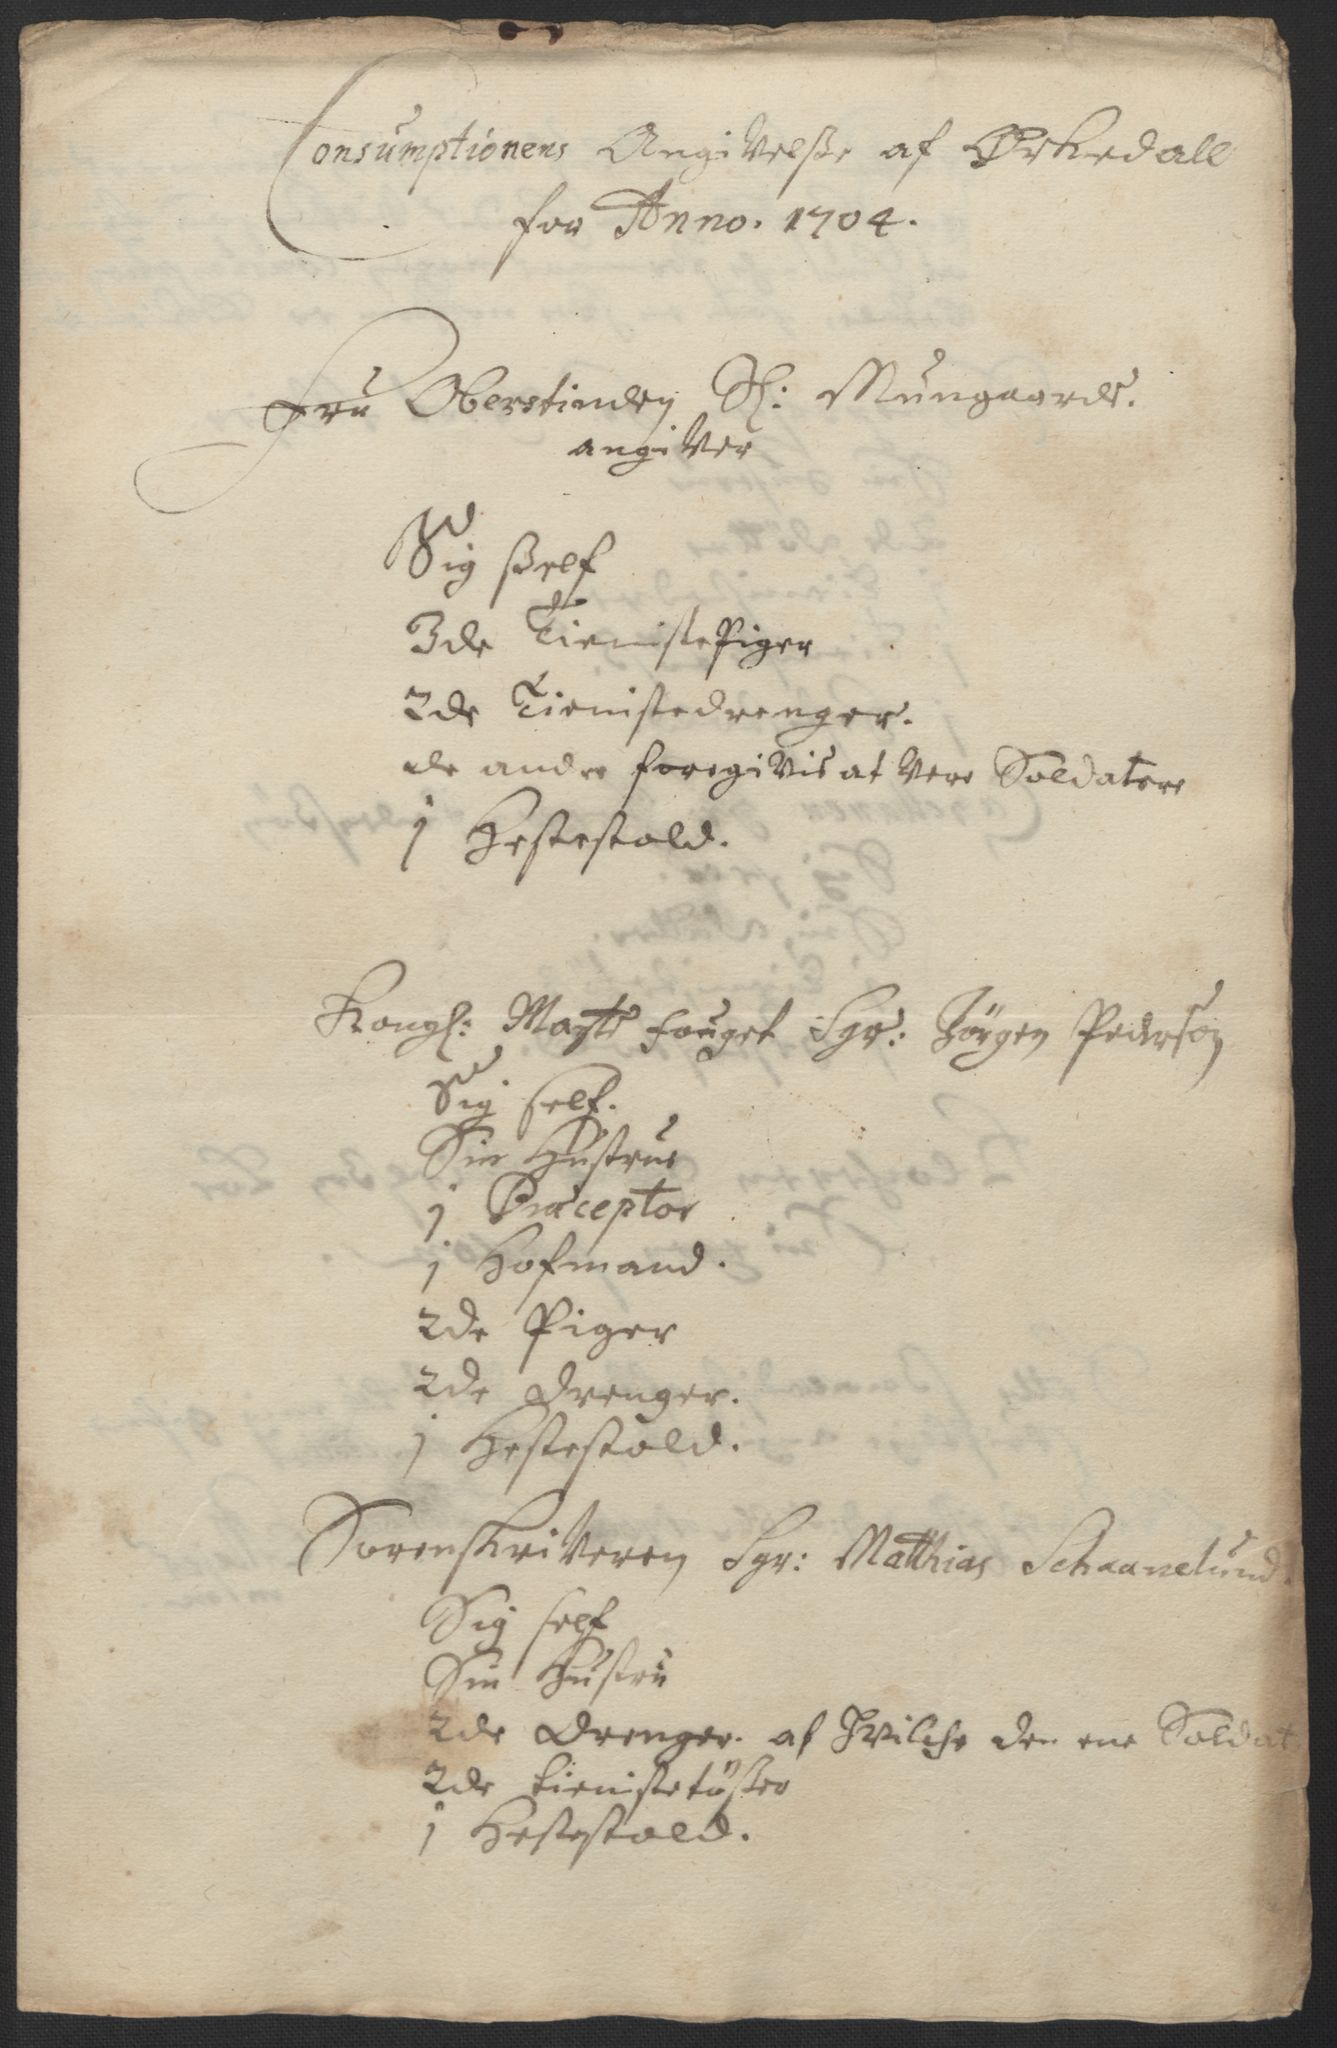 Consumptionens Angivelsse af Ørkedall
for Anno. 1704.
Fru Oberstinden Sl: Mungaards.
angiver
Sig sself
3de TienistePiger
2de Tienistedrenger.
de andre foregivis at vere Soldatere
1 Hestestald.
Kongl: Mayts fouget Sgr: Jörgen Pedersøn
Sig self.
Sin Hustrue
1 Præceptor
1 Hofmand.
2de Piger
2de Drenger.
1 Hestestald.
Sorenskriveren Sgr: Matthias Schaanelund.
Sig self
Sin Hustru
2de Drenger. af hvilche den ene Soldat
2de tienistetösser
1 Hestestald.